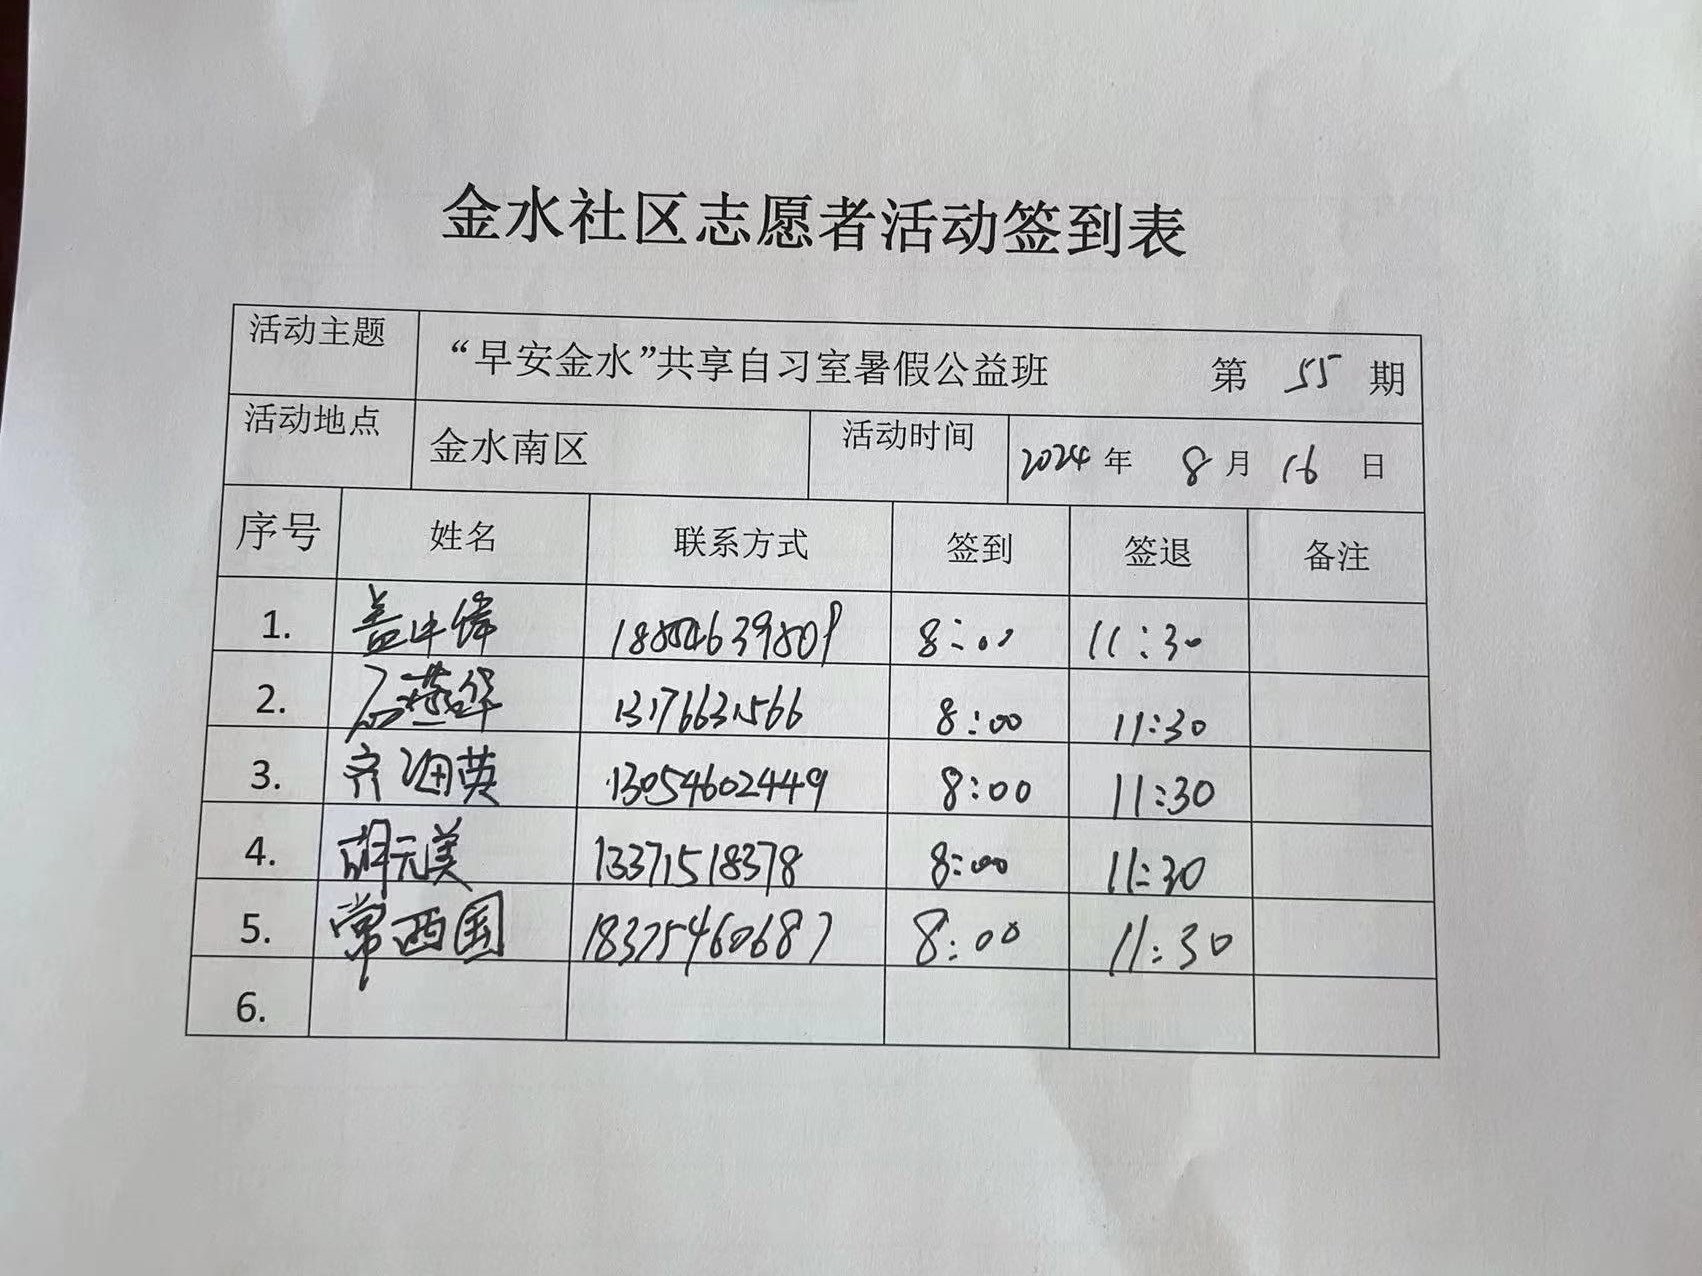 金水社区志愿者活动签到表
活动主题 “早安金水”共享自习室暑假公益班 第 55 期
活动地点 金水南区 活动时间 2024 年 8 月 16 日
序号 姓名 联系方式 签到 签退 备注
1. 8:00 11:30
2. 燕华 13176631566 8:00 11:30
3. 齐海英 13054602449 8:00 11:30
4. 胡元美 13371518378 8:00 11:30
5. 常西国 18375460687 8:00 11:30
6.